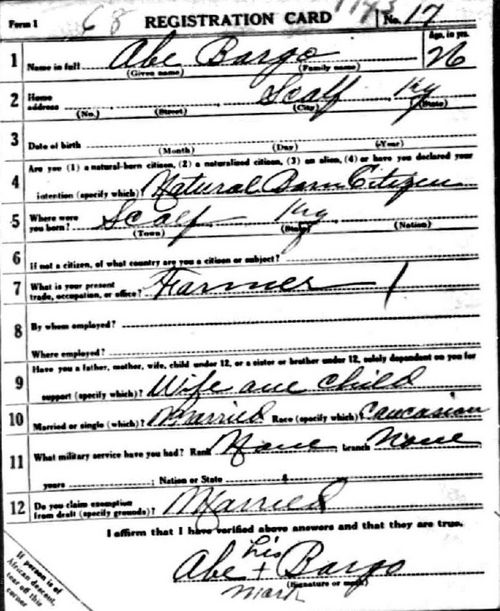 Form 1 68 REGISTRATION CARD No. 17
1 Name in full Abe Bargo Age, in yrs. 26
(Given name) (Family name)
2 Home address Scalf, Ky
(No.) (Street) (City) (State)
3 Date of birth
(Month) (Day) (Year)
4 Are you (1) a natural-born citizen, (2) a naturalized citizen, (3) an alien, (4) or have you declared your
intention (specify which)? Natural Born Citizen
5 Where were you born? Scalf Ky
(Town) (State) (Nation)
6 If not a citizen, of what country are you a citizen or subject?
7 What is your present trade, occupation, or office? Farmer
8 By whom employed?
Where employed?
9 Have you a father, mother, wife, child under 12, or a sister or brother under 12, solely dependent on you for
support (specify which)? Wife one child
10 Married or single (which)? Married Race (specify which)? Caucasian
11 What military service have you had? Rank None, branch None
years ; Nation or State
12 Do you claim exemption from draft (specify grounds)? Married
I affirm that I have verified above answers and that they are true.
his
Abe + Bargo
(Signature or mark)
mark
If person is of
African descent,
tear off this
corner